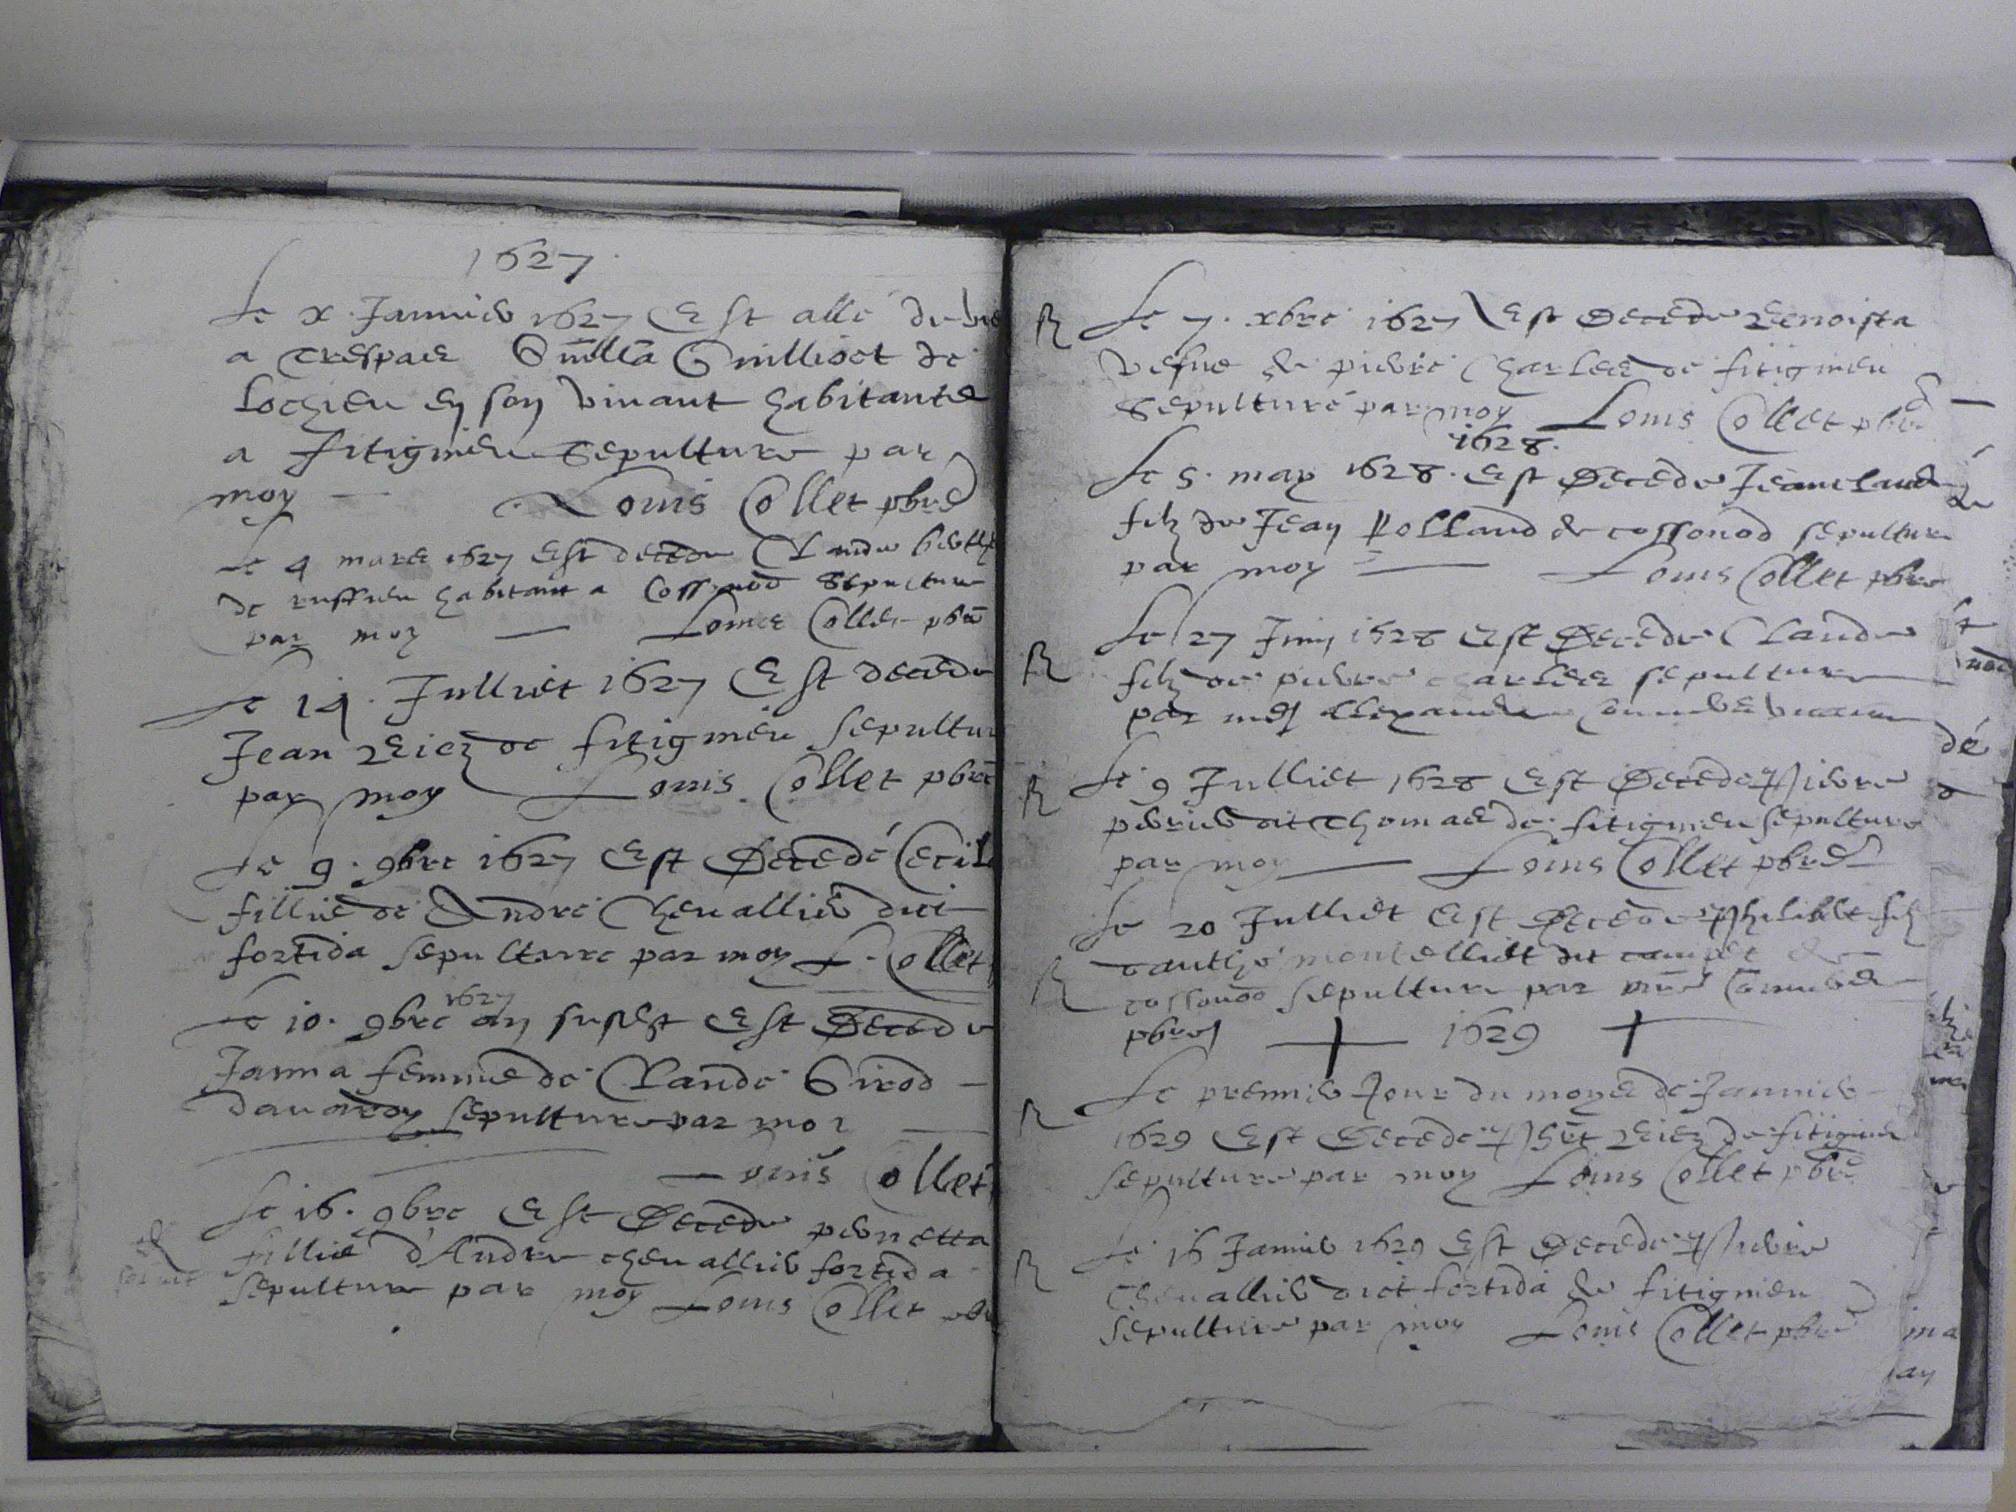 1627
Le x Januier 1627 Est allé de vie
a trespas Guilla Guillioct de
Lochieu en son viuant habitante
a fitignieu Sepulture par
moy Louis Collet pbre
Le 4 mars 1627 Est decede Claude
de ruffieu habitant a Cossonod Sepulture
par moy Louis Collet pbre
Le 14 Julliet 1627 Est decede
Jean Reiez de fitignieu sepulture
par moy Louis Collet pbre
Le 9. 9bre 1627 Est Decedé Cecile
fillie de Andre Cheuallier dict
fortida sepulture par moy L. Collet
1627
Le 10. 9bre an susdt Est Decede
Janna femme de Claude Girod
sepulture par moy
Louis Collet
Le 16. 9bre Est Decede pernetta
fillie d'Andre cheuallier fortida
sepulture par moy Louis Collet
R Le 7. xbre 1627 Est Decede Benoista
vefue de pierre Charles de fitignieu
Sepulture par moy Louis Collet pbre
1628.
Le 5. may 1628. Est Decede Jeanclaude
filz de Jean Rolland de cossonod sepulture
par moy Louis Collet pbre
R Le 27 Juin 1628 Est Decede Claude
filz de pierre charles sepulture
par mes Alexandre
R Le 9 Julliet 1628 Est Decede Pierre
perrier dit Thomas de fitignieu sepulture
par moy Louis Collet pbre
Le 20 Julliet Est Decede Philibert filz
R danthe dit de
cossonod sepulture par
pbre 1629
R Le premier Jour du moys de Januier
1629 Est Decede Reiez de fitignieu
sepulture par moy Louis Collet pbre
R Le 16 Januier 1629 Est Decede Pierre
Cheuallier dict fortida de fitignieu
sepulture par moy Louis Collet pbre